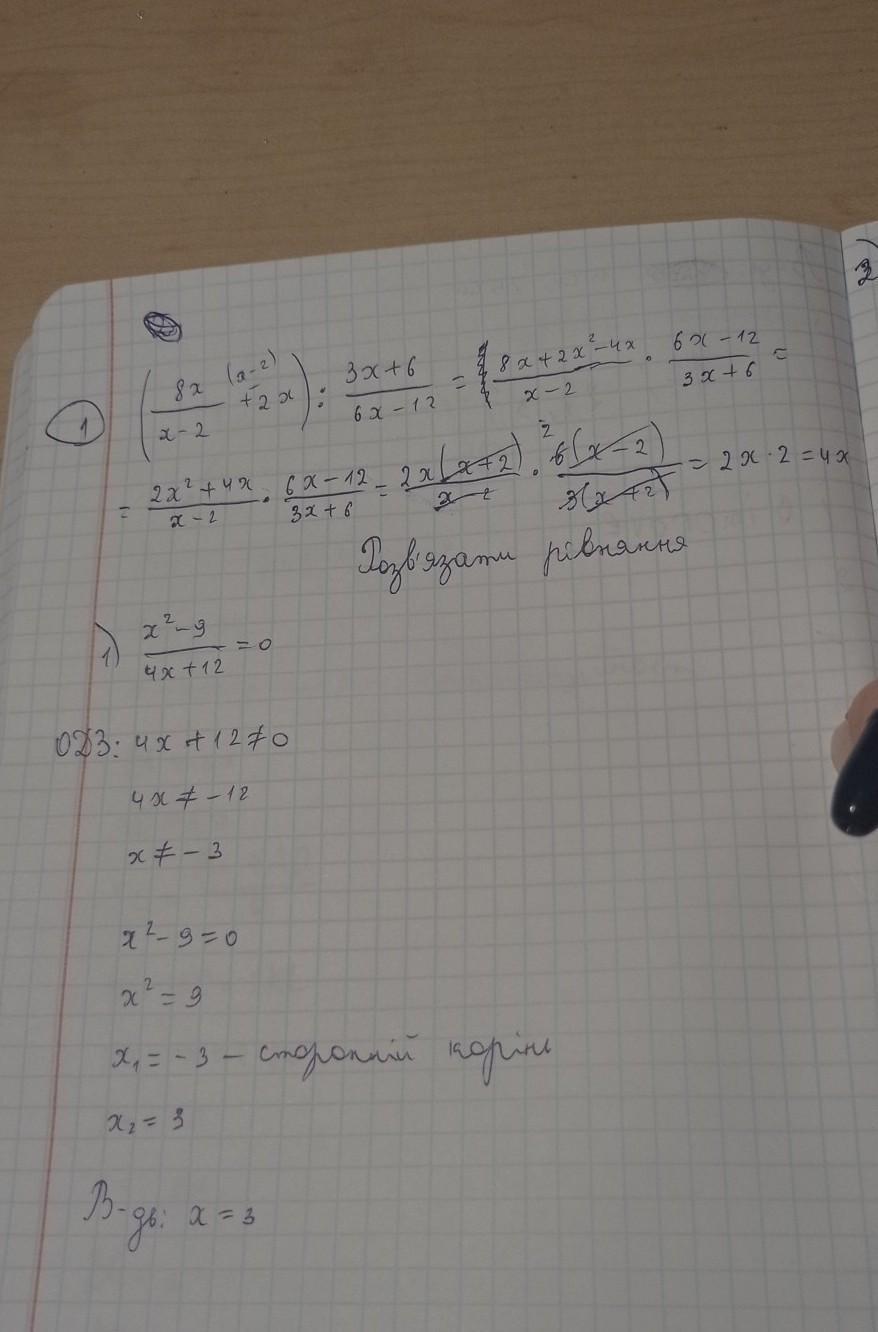 1 (8x/(x-2) + 2x^(x-2)) : (3x+6)/(6x-12) = (8x+2x²-4x)/(x-2) · (6x-12)/(3x+6) =
= (2x²+4x)/(x-2) · (6x-12)/(3x+6) = 2x(x+2)/(x-2) · 6(x-2)/3(x+2) ² = 2x·2 = 4x
Розв'язати рівняння
1) (x²-9)/(4x+12) = 0
ОДЗ: 4x + 12 ≠ 0
4x ≠ -12
x ≠ -3
x² - 9 = 0
x² = 9
x₁ = -3 - сторонній корінь
x₂ = 3
В-дь: x = 3